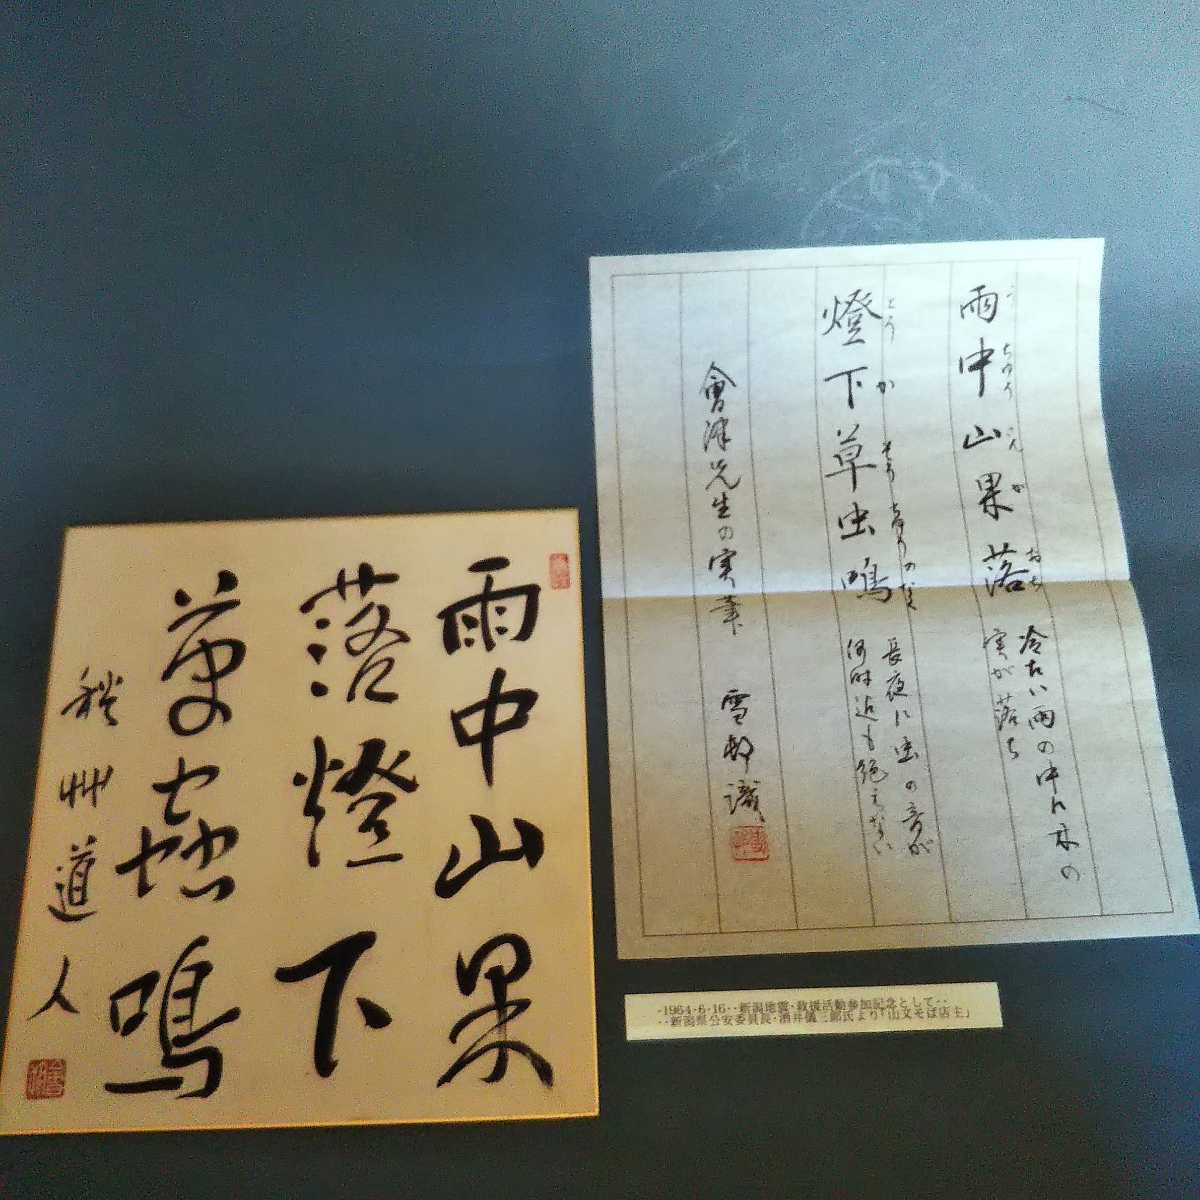 雨中山果
落燈下
草蟲鳴
秋艸道人
雨中山果落
う ちゆう さん か おち
冷たい雨の中に木の
実が落ち
燈下草虫鳴
とう か そう ちゆうのなく
長夜に虫の音が
何時迄も絶えない
會津先生の実筆
雪邨識
・1964・6・16・・新潟地震・救援活動参加記念として・・
・・新潟県公安委員長・酒井儀三郎氏より「山文そば店主」